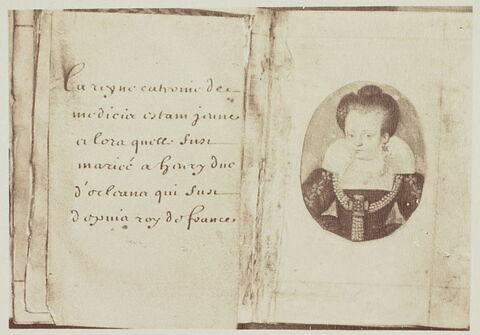 La reyne catronie de
medicis estant jeune
a lors quelle fust
mariée a henry duc
d'orleans qui fust
depuis roy de france